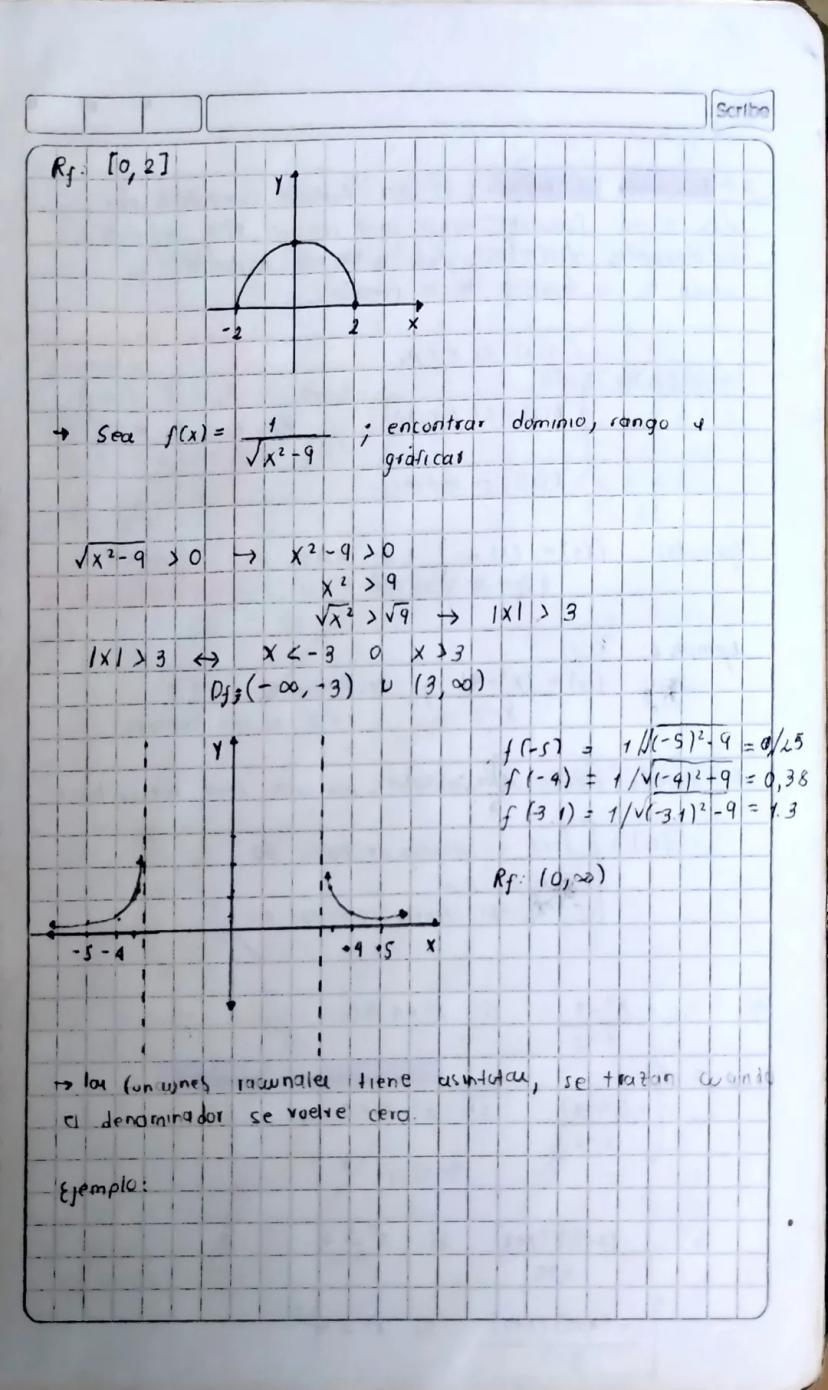 Scribe
Rf: [0, 2]
Y
-2 2 X
→ Sea f(x) = 1 / √x² - 9 ; encontrar dominio, rango y
gráficar
√x² - 9 > 0 → x² - 9 > 0
x² > 9
√x² > √9 → |x| > 3
|x| > 3 ↔ x < -3 o x > 3
Df: (-∞, -3) ∪ (3, ∞)
f(-5) = 1/√(-5)² - 9 = 0/25
f(-4) = 1/√(-4)² - 9 = 0,38
f(-3.1) = 1/√(-3.1)² - 9 = 1.3
Y
Rf: (0, ∞)
-5 -4 4 5 X
→ las funciones racionales tiene asintotas, se trazan cuando
el denominador se vuelve cero.
Ejemplo: